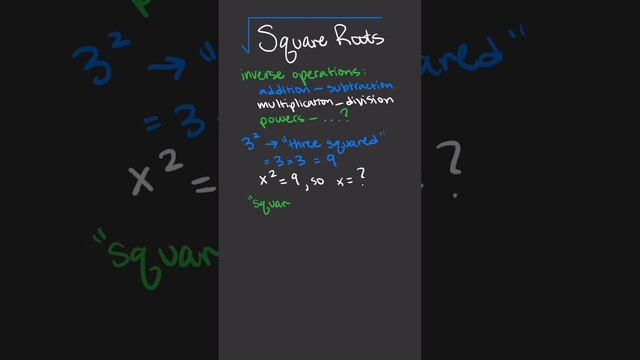 Square Roots
inverse operations:
addition - subtraction
multiplication - division
powers - ...?
3² → "three squared"
= 3 × 3 = 9
x² = 9, so x = ?
"squar